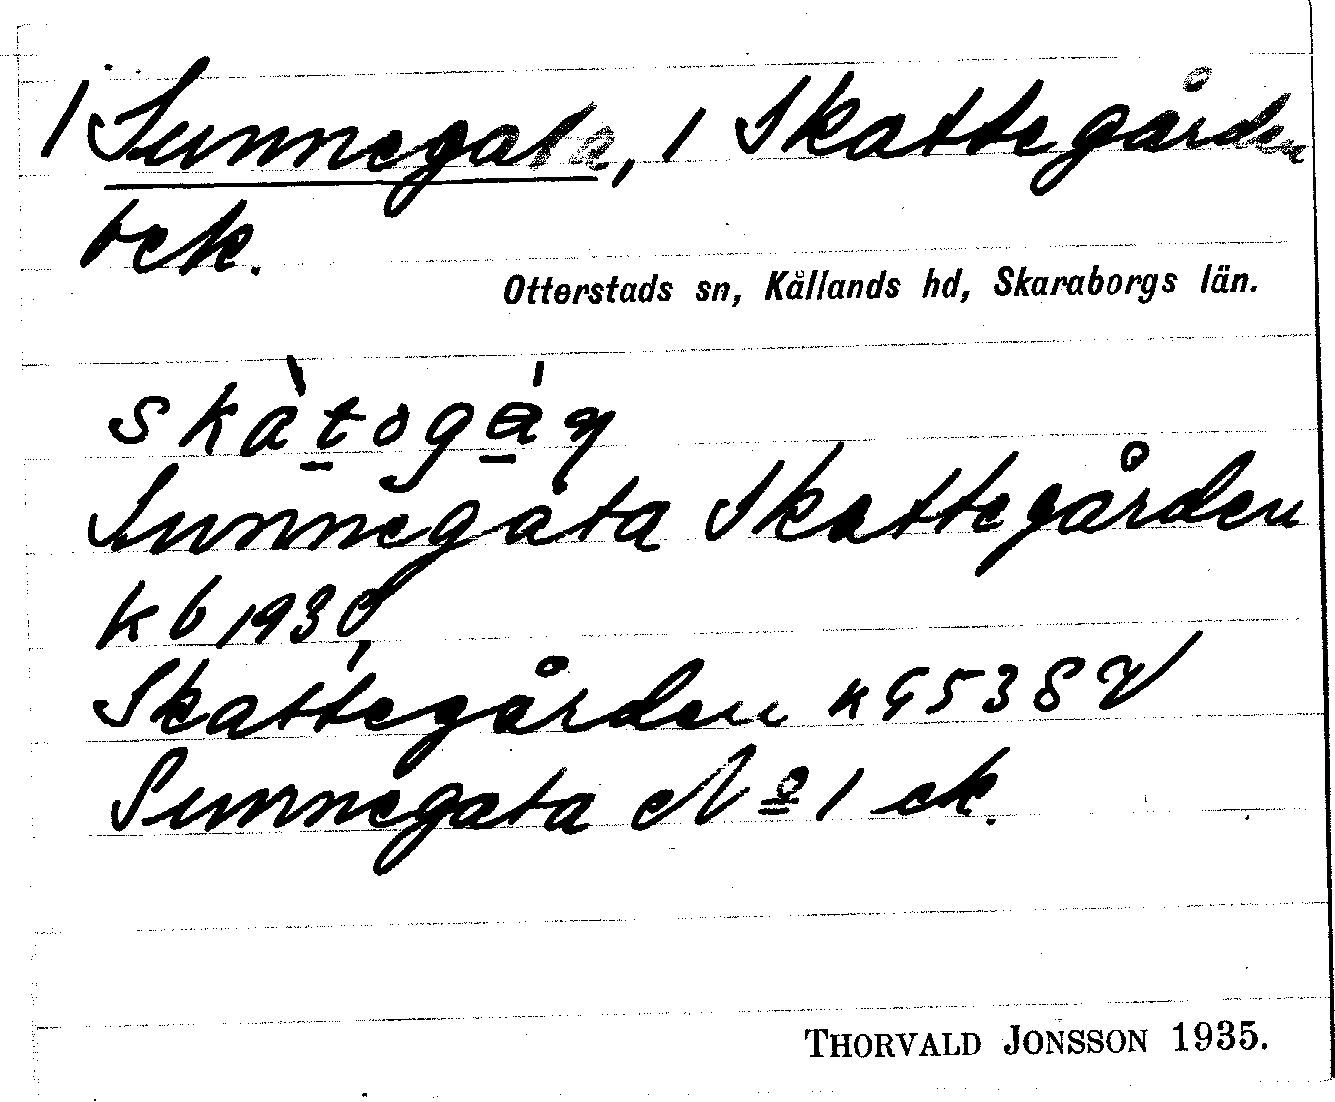 1 Sunnegata, 1 Skattegården
bek.
Otterstads sn, Kållands hd, Skaraborgs län.
Sunnegata Skattegården
kb 1930,
Skattegården k G 538 V
Sunnegata No 1 ek.
THORVALD JONSSON 1935.